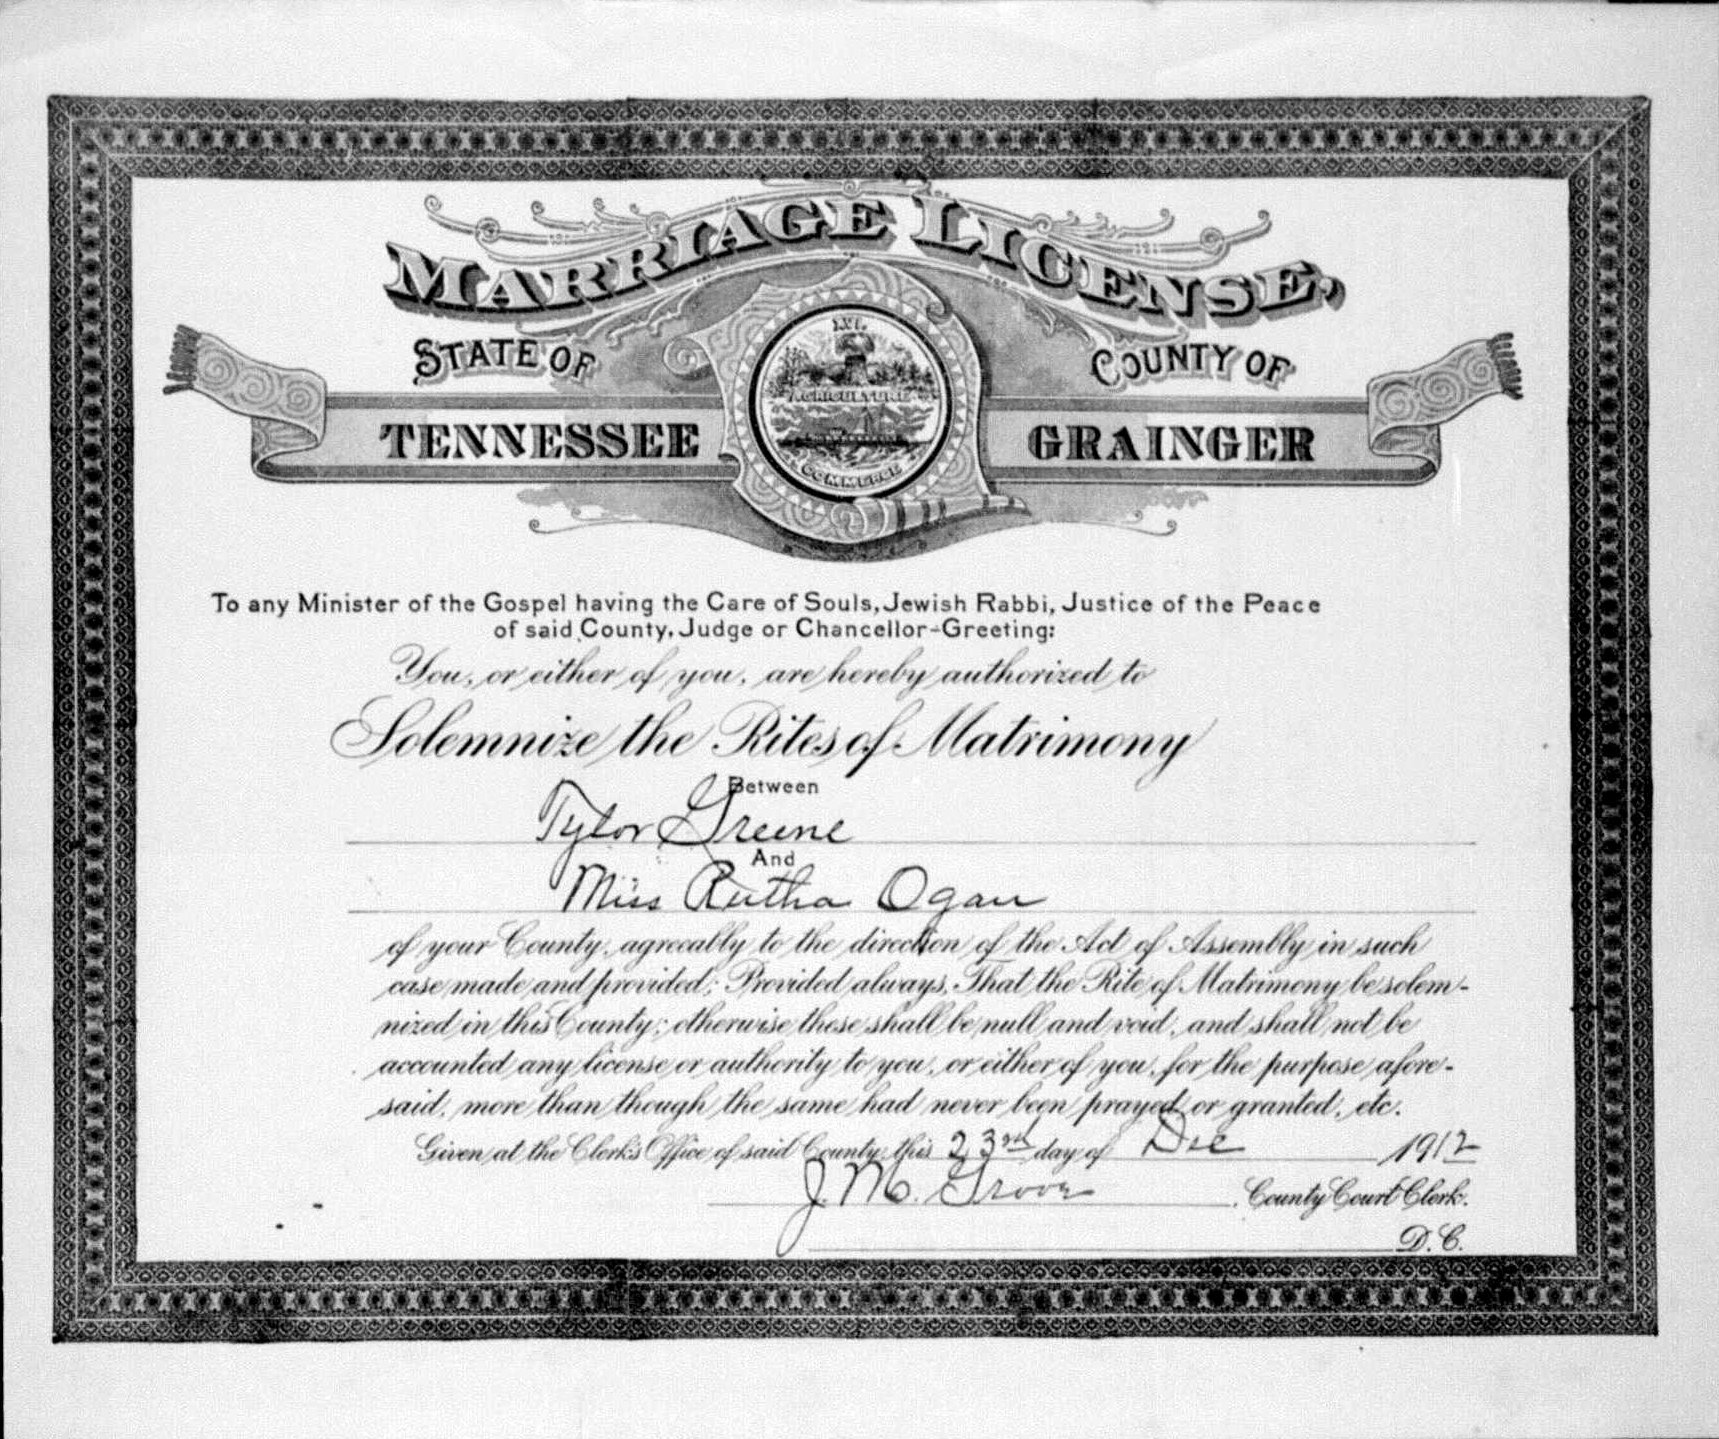 MARRIAGE LICENSE,
STATE OF
COUNTY OF
TENNESSEE
GRAINGER
XVI.
AGRICULTURE
COMMERCE
To any Minister of the Gospel having the Care of Souls, Jewish Rabbi, Justice of the Peace
of said County, Judge or Chancellor-Greeting:
You, or either of you, are hereby authorized to
Solemnize the Rites of Matrimony
Between
Tylor Greene
And
Miss Rutha Ogan
of your County, agreeably to the direction of the Act of Assembly in such
case made and provided; Provided always, That the Rite of Matrimony be solem-
nized in this County; otherwise these shall be null and void, and shall not be
accounted any license or authority to you, or either of you, for the purpose afore-
said, more than though the same had never been prayed or granted, etc.
Given at the Clerk's Office of said County, this 23rd day of Dec 1912
J. M. Grove County Court Clerk.
D. C.